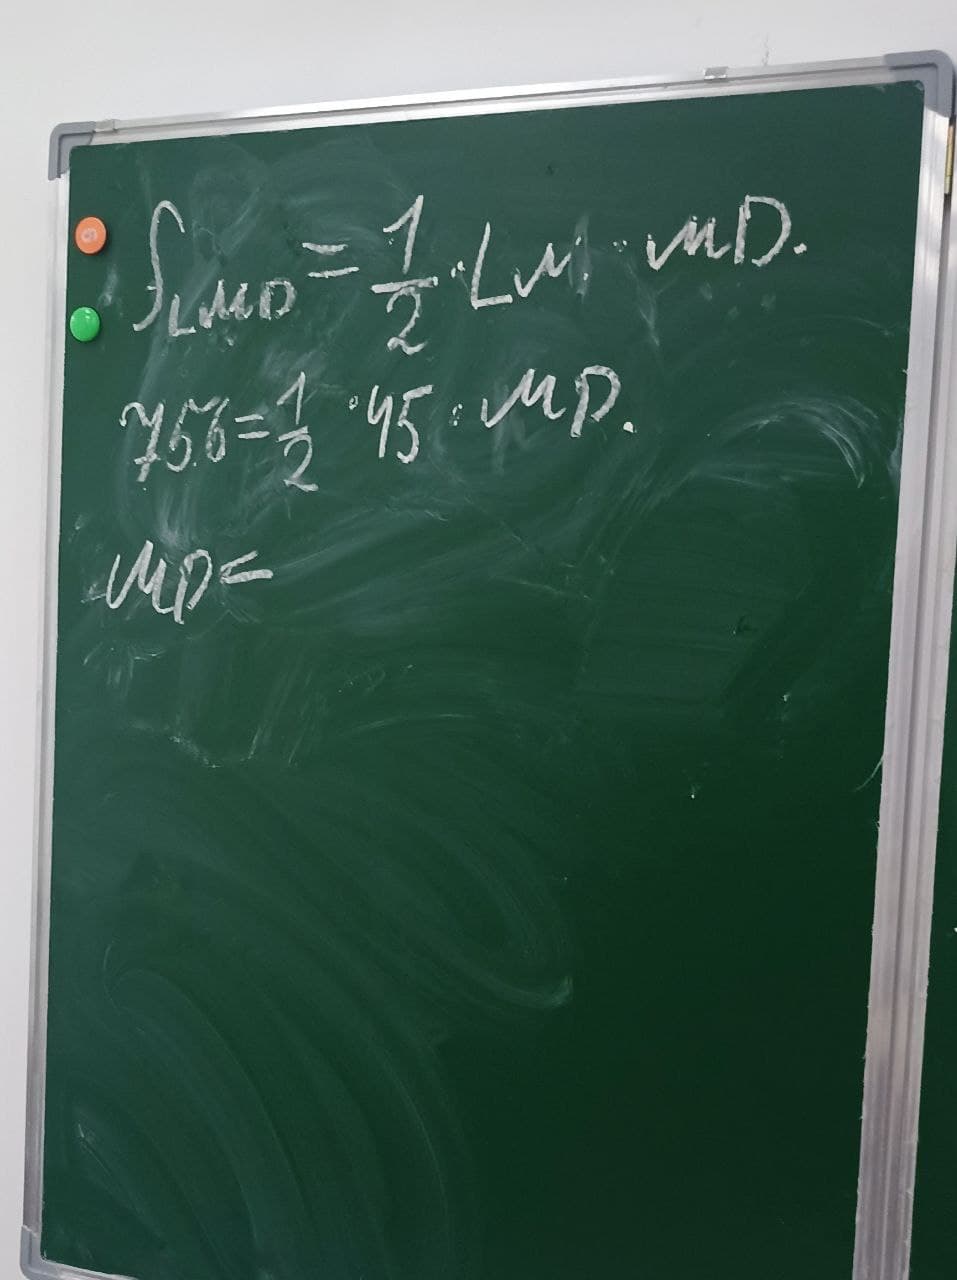 S_LMD = 1/2 · LM · MD.
756 = 1/2 · 45 · MD.
MD =